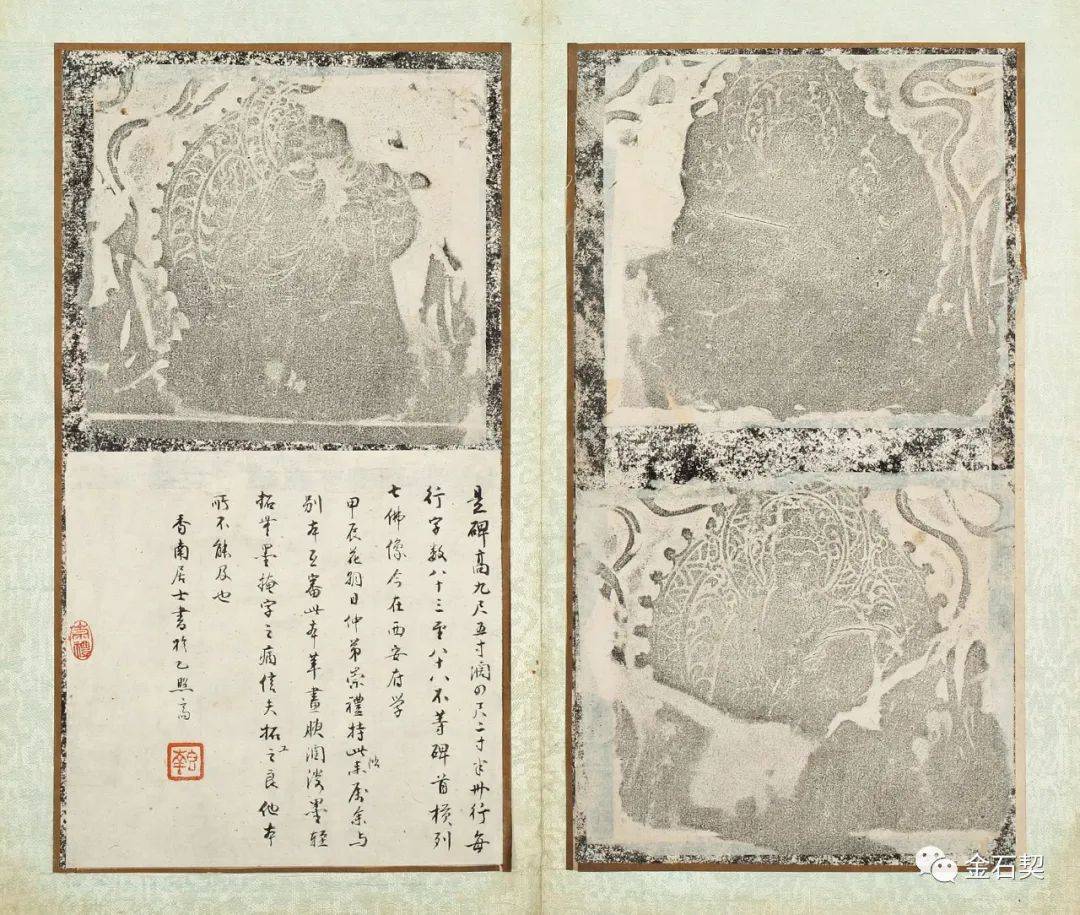 是碑高九尺五寸濶四尺二寸半卅行每
行字数八十三至八十八不等碑首横列
七佛像今在西安府学
甲辰花朝日仲弟崇禮持此本属余与
别本互審此本筆畫腴润淡墨轻
拓無墨掩字之病信夫拓工之良他本
所不能及也
香南居士書於乙照斋
崇禮
金石契